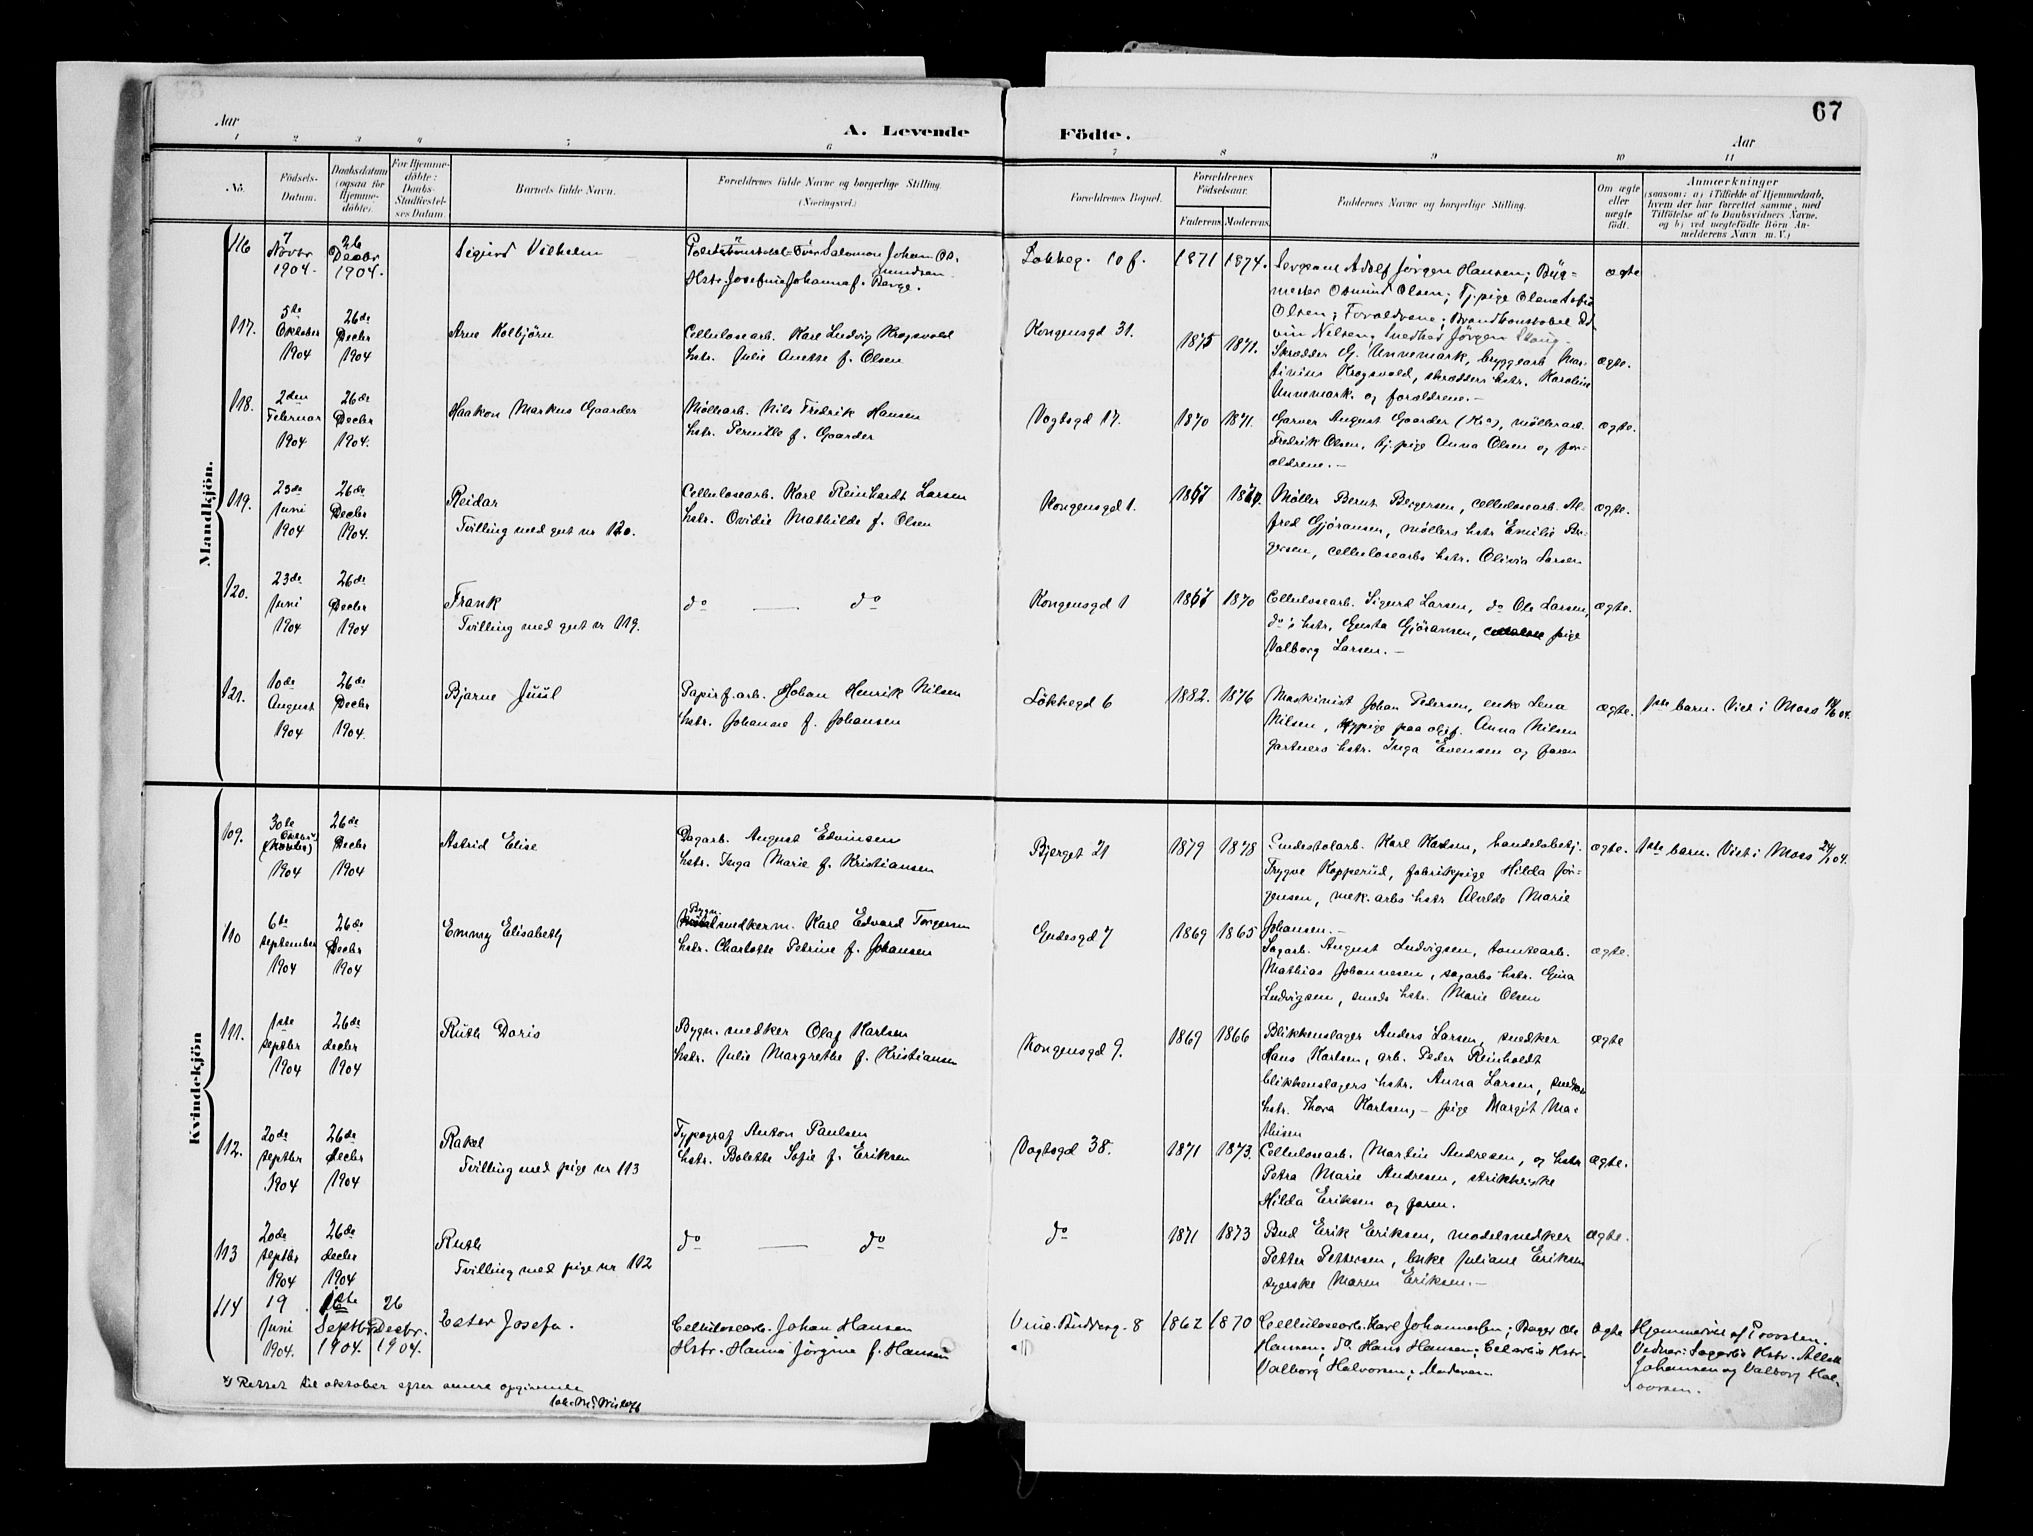 67
Aar
A. Levende
Födte.
Aar
1 2 3 4 5 6 7 8 9 10 11
No.
Födsels-
Datum.
Daabsdatum
(ogsaa for
Hjemme-
döbte).
For Hjemme-
döbte:
Daabs-
Stadfæstel-
ses Datum.
Barnets fulde Navn.
Forældrenes fulde Navne og borgerlige Stilling.
(Næringsvei.)
Forældrenes Bopæl.
Forældrenes
Födselsaar.
Faderens Moderens.
Faddernes Navne og borgerlige Stilling.
Om ægte
eller
uægte
födt.
Anmærkninger
(saasom: a) i Tilfælde af Hjemmedaab,
hvem der har forrettet samme, med
Tilföielse af to Daabsvidners Navne,
og b) ved uægtefödte Börn An-
melderens Navn m. V.)
Mandkjön.
116
7
Novbr
1904.
26
Decbr
1904.
Sigurd Vilhelm
Salomon Johan Os-
mundsen
Hstr. Josefine Johanna f. Berge.
Lökkeg. 10 f.
1871 1874.
Sergeant Adolf Jørgen Hansen; Büg-
mester Osmund Olsen; Tj. pige Olena Sofie
Olsen; Forældrene; Brandkonstabel Ed-
vin Nelsen, Snedker Jörgen Skaug.
ægte
117.
5te
Oktober
1904
26de
Decbr
1904
Arne Kolbjörn
Cellulosearb. Karl Ludvig Krogsvold
hstr. Julie Anette f. Olsen
Kongensgd 31.
1875 1871.
Skrædder G. Unnemark, bryggearb. Mar-
tinius Krogsvold, skrædders hstr. Karoline
Unnemark og forældrene.-
ægte.
118.
2den
Februar
1904
26de
Decbr
1904.
Haakon Markus Gaarder
Möllearb. Nils Fredrik Hansen
hstr. Pernille f. Gaarder
Vogtsgd 17.
1870 1871.
Garver August Gaarder (Kra), möllerarb.
Fredrik Olsen, tj. pige Anna Olsen og for-
ældrene.-
ægte.
119.
23de
Juni
1904
26de
Decbr
1904.
Reidar
Tvilling med gut nr 120.
Cellulosearb. Karl Reinhardt Larsen
hstr. Ovidie Mathilde f. Olsen
Kongensgd 1.
1867 1870.
Möller Bernt Bergersen, cellulosearb. Al-
fred Gjöransen, möllers hstr Emilie Ber-
gersen, cellulosearbs hstr. Olivia Larsen
ægte.
120.
23de
Juni
1904
26de
Decbr
1904
Frank
Tvilling med gut nr 119.
do — do
Kongensgd 1
1867 1870
Cellulosearb. Sigurd Larsen, do Ole Larsen,
do's hstr. Gusta Gjöransen, pige
Valborg Larsen.-
ægte.
121.
10de
August
1904
26de
Decbr
1904.
Bjarne Juul
Papirf.arb. Johan Henrik Nilsen
hstr. Johanne f. Johansen
Lökkegd 6
1882. 1876
Maskinist Johan Pedersen, enke Lena
Nilsen, pige paa oljef. Anna Nilsen
gartners hstr. Inga Evensen og faren
ægte.
1ste barn. Viet i Moss 04.
Kvindekjön
109.
30te
Oktbr
(Novbr)
1904
26de
Decbr
1904
Astrid Elise
Dagarb. August Edvinsen
hstr. Inga Marie f. Kristiansen
Bjerget 21
1879 1878
Karl Karlsen, handelsbetj.
Trygve Kopperud, fabrikpige Hilda Jör-
gensen, mek. arbs hstr Alvilde Marie
Johansen.-
ægte.
1ste barn. Viet i Moss 24/1 04.
110
6te
September
1904
26de
Decbr
1904
Emmy Elisabeth
Bygn.
snedkerm. Karl Edvard Torgersen
hstr. Charlotte Petrine f. Johansen
Gudesgd 7
1869 1865
Sagarb. August Ludvigsen, tomtearb.
Mathias Johannesen, sagarbs hstr. Gina
Ludvigsen, smeds hstr. Marie Olsen
ægte.
111.
1ste
Septbr
1904
26de
decbr
1904
Ruth Doris
Bygn. snedker Olaf Karlsen
hstr. Julie Margrethe f. Kristiansen
Kongensgd 9.
1869 1866
Blikkenslager Anders Larsen, snedker
Hans Karlsen, arb. Peder Reinholdt
blikkenslagers hstr. Anna Larsen, snedkers
hstr. Thora Karlsen, - pige Margit Ma-
thisen
ægte
112.
20de
Septbr
1904
26de
decbr
1904
Rakel
Tvilling med pige nr 113
Typograf Anton Paulsen
hstr. Bolette Sofie f. Eriksen
Vogtsgd 38.
1871 1873.
Cellulosearb. Martin Andresen, og hstr
Petra Marie Andresen, strikkerske
Hilda Eriksen og faren.
ægte.
113
20de
Septbr
1904
26de
decbr
1904
Ruth
Tvilling med pige nr 112
do — do
do
1871 1873
Bud Erik Eriksen, modelsnedker
Petter Pettersen, enke Juliane Eriksen
syerske Maren Eriksen.-
ægte.
114
19
Juni
1904.
Septbr
1904.
26
Decbr.
1904.
Ester Josefa.
Cellulosearb. Johan Hansen
Hstr. Hanna Jörgine f. Hansen
8
1862 1870
Cellulosearb. Karl Johannesen; Bager Ole
Hansen; do. Hans Hansen; Cel.arbs Hstr.
Valborg Halvorsen; Moderen
ægte
Hjemmedöbt af Provsten.
Vidner: Sagarbs Hstr.
Johansen og Valborg Hal-
vorsen.
x) Rettet til oktober efter senere opgivende